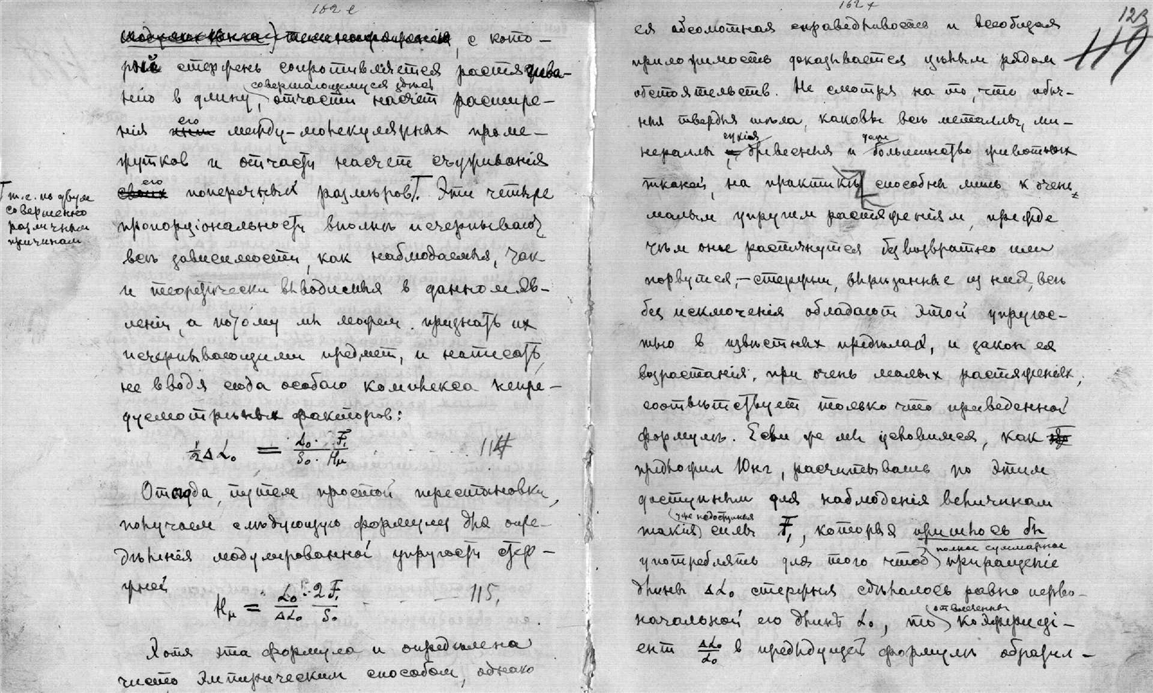 162 е
с кото-
рый стержень сопротивляется растягива-
совершающемуся этой
нію в длину, отчасти насчет расшире-
нія его между-молекулярных проме-
жутков и отчасти насчет съуживанія
его поперечных размѣров. Эти четыре
т.е. по двум
совершенно
различным
причинам
пропорціональности вполнѣ исчерпывают
всѣ зависимости, как наблюдаемыя, так
и теоретически выводимыя в данном яв-
леніи, а потому мы можем признать их
исчерпывающими предмет, и написать,
не вводя сюда особаго комплекса непре-
дусмотрѣнных факторов:
½ΔL₀ = L₀ · F₁ / S₀ · H_μ 114
Отсюда, путем простой перестановки,
получаем слѣдующую формулу для опре-
дѣленія модулированной упругости стер-
жней
H_μ = L₀ · 2F₁ / ΔL₀ S₀ 115,
Хотя эта формула и опредѣлена
чисто эмпирическим способом, однако
123
119
ся абсолютная справедливость и всеобщая
приложимость доказывается цѣлым рядом
обстоятельств. Не смотря на то, что обыч-
ныя твердыя тѣла, каковы всѣ металлы, ми-
сухія
нералы, древесныя и большинство животных
тканей, на практикѣ способны лишь к очень
малым упругим растяженіям, прежде
чѣм онѣ растянутся безвозвратно или
порвутся, — стержни, вырѣзанные из них, всѣ
без исключенія обладают этой упругос-
тью в извѣстных предѣлах, и закон ея
возрастанія, при очень малых растяженіях,
соотвѣтствует только что приведенной
формулѣ. Если же мы условимся, как
предложил Юнг, расчитывать по этим
доступным для наблюденія величинам
такія силы F₁, которыя пришлось бы
полное суммарное
употреблять для того чтоб приращеніе
длины ΔL₀ стержня сдѣлалось равно перво-
начальной его длинѣ L₀, то коэффиці-
ент ΔL₀/L₀ в предыдущей формулѣ обратил-